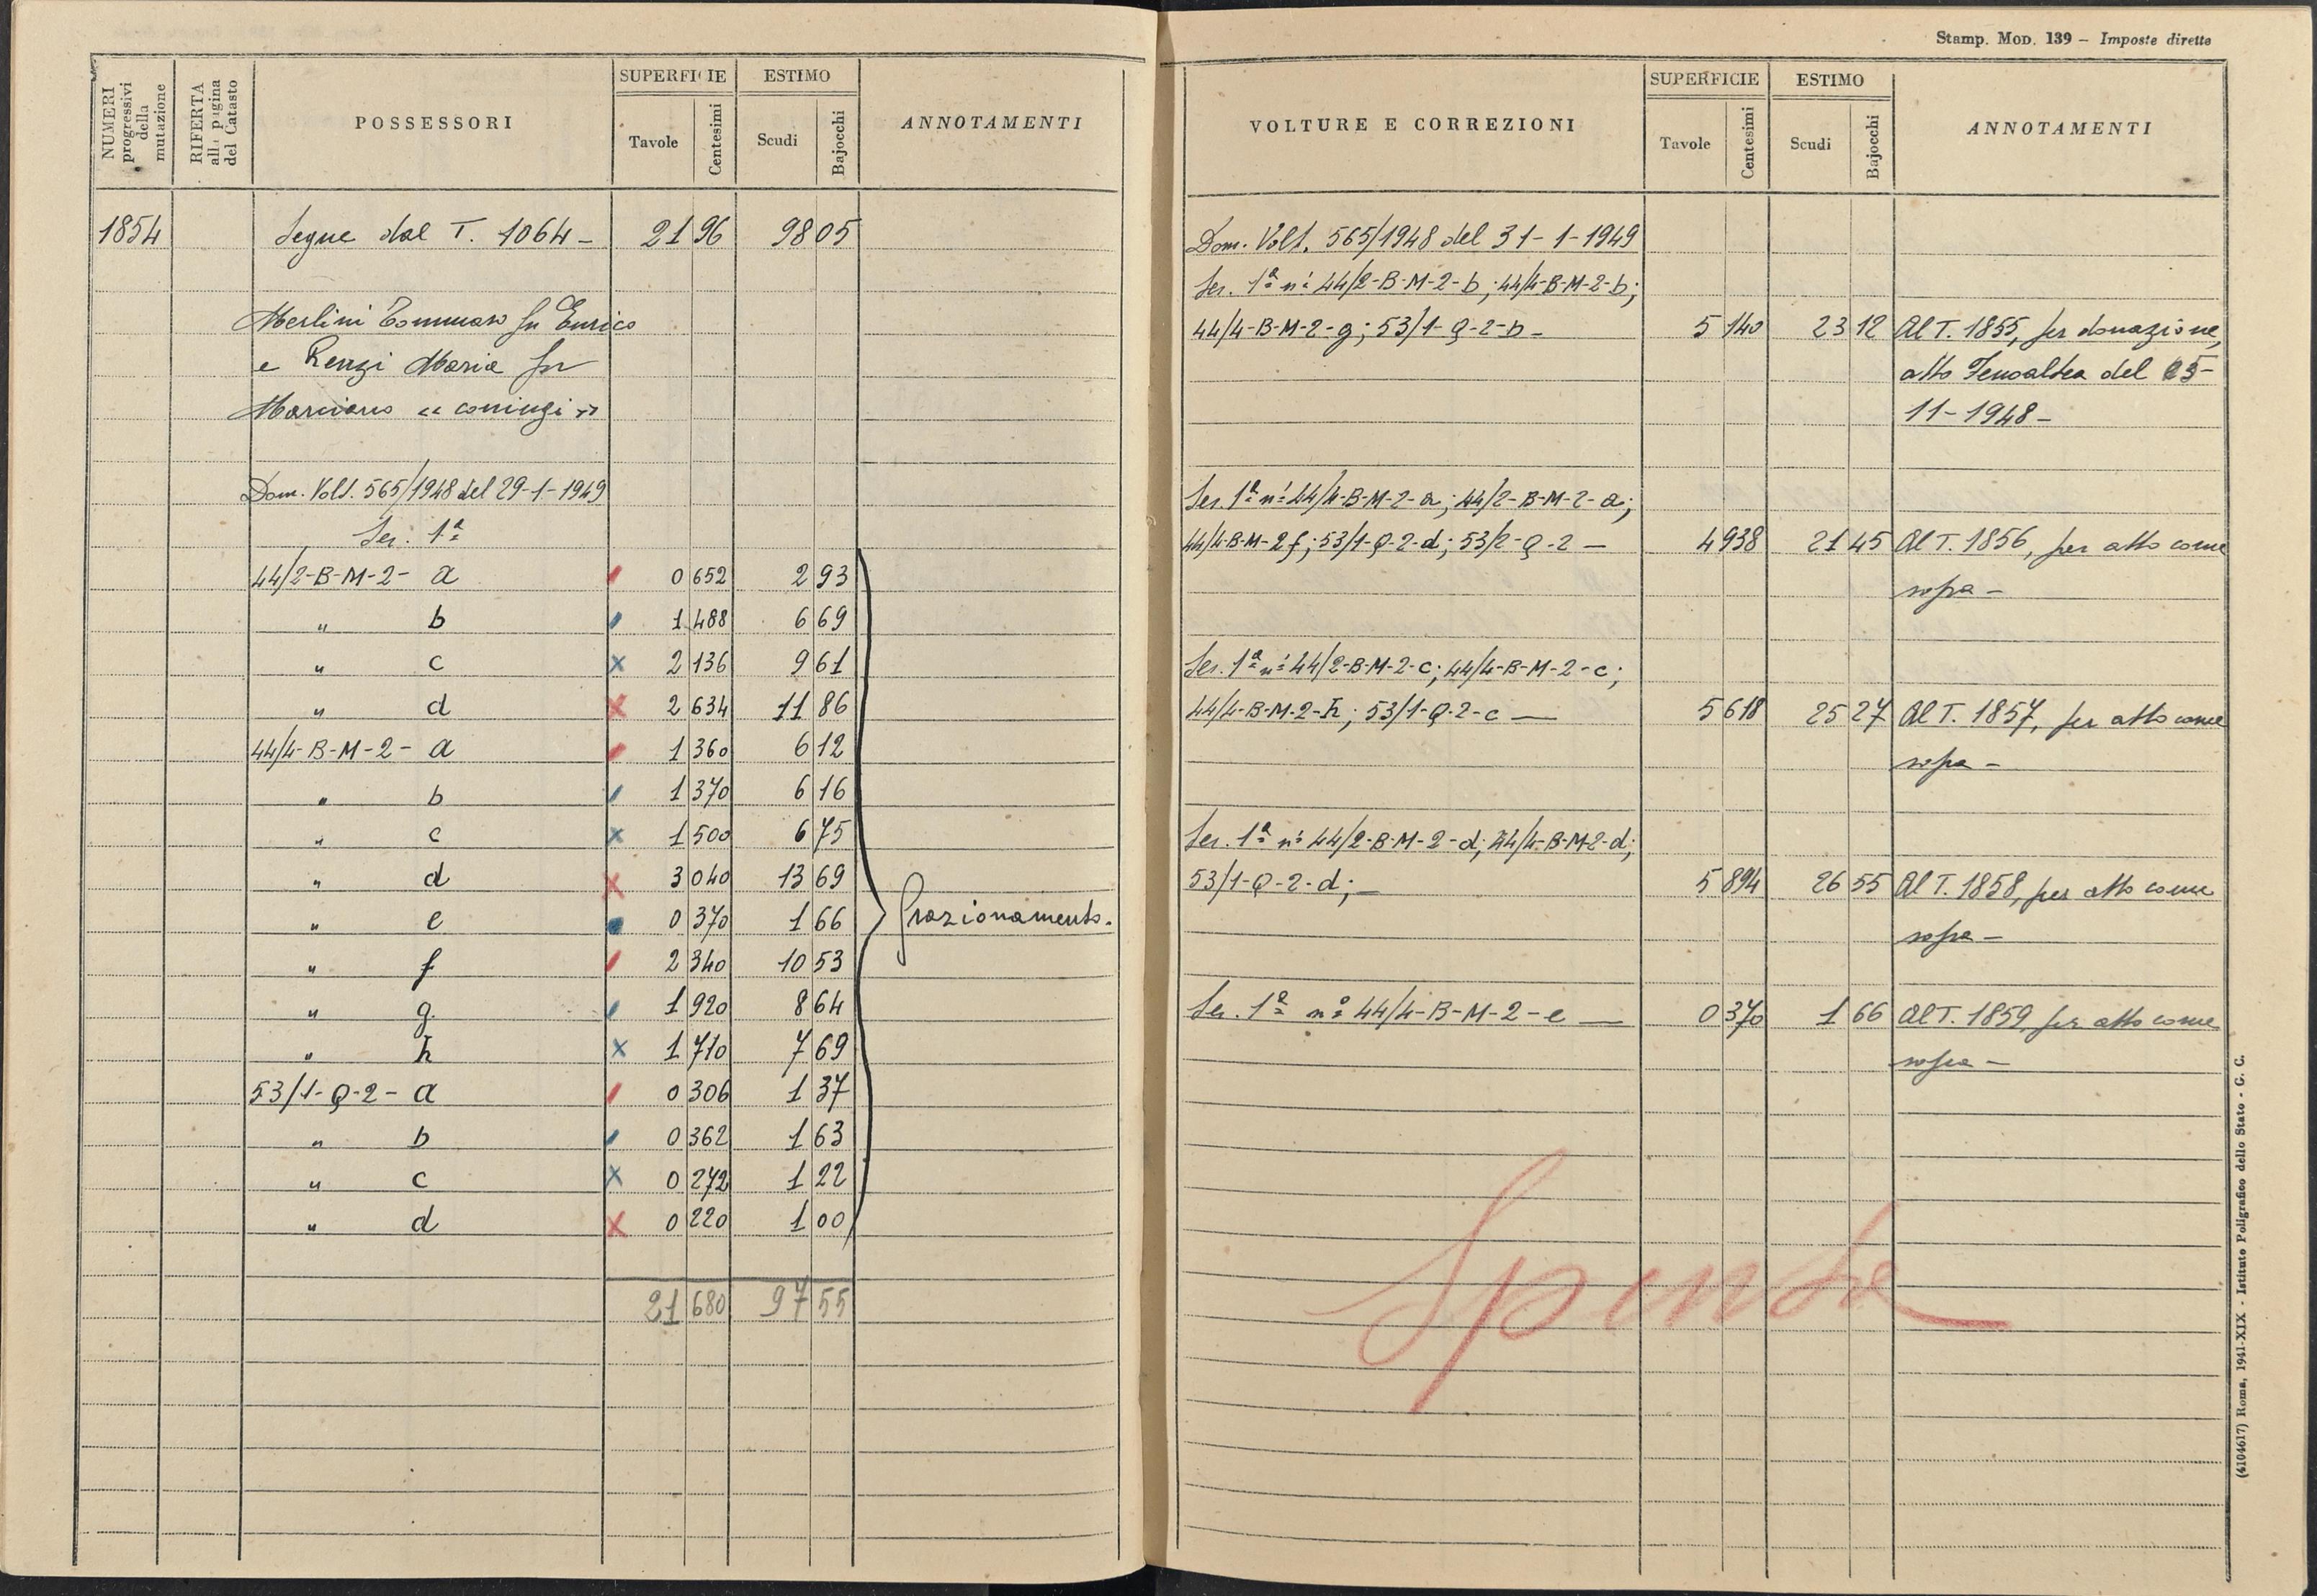 NUMERI progressivi della mutazione
RIFERTA alla pagina del Catasto
POSSESSORI
SUPERFICIE
Tavole
Centesimi
ESTIMO
Scudi
Bajocchi
ANNOTAMENTI
1854 Segue dal T. 1064 - 21 96 98 05
Merlini Tommaso fu Enrico
e Renzi Maria fu
Marciano « coniugi »
Dom. Volt. 565/1948 del 29-1-1949
Ser. 1ª
44/2-B-M-2- a 0 652 2 93
" b 1 488 6 69
" c 2 136 9 61
" d 2 634 11 86
44/4-B-M-2- a 1 360 6 12
" b 1 370 6 16
" c 1 500 6 75
" d 3 040 13 69
" e 0 370 1 66 frazionamento.
" f 2 340 10 53
" g 1 920 8 64
" h 1 710 7 69
53/1-Q-2- a 0 306 1 37
" b 0 362 1 63
" c 0 272 1 22
" d 0 220 1 00
21 680 97 55
Stamp. MOD. 139 – Imposte dirette
VOLTURE E CORREZIONI
SUPERFICIE
Tavole
Centesimi
ESTIMO
Scudi
Bajocchi
ANNOTAMENTI
Dom. Volt. 565/1948 del 31-1-1949
Ser. 1ª ni 44/2-B-M-2-b; 44/4-B-M-2-b;
44/4-B-M-2-g; 53/1-Q-2-b - 5 140 23 12 Al T. 1855, per donazione,
atto Fenoaltea del 25-
11-1948-
Ser. 1ª ni 44/4-B-M-2-a; 44/2-B-M-2-a;
44/4-B-M-2 f; 53/1-Q-2-d; 53/2-Q-2 — 4 938 21 45 Al T. 1856, per atto come
sopra -
Ser. 1ª ni 44/2-B-M-2-c; 44/4-B-M-2-c;
44/4-B-M-2-h; 53/1-Q-2-c — 5 618 25 27 Al T. 1857, per atto come
sopra -
Ser. 1ª ni 44/2-B-M-2-d; 44/4-B-M-2-d;
53/1-Q-2-d; — 5 894 26 55 Al T. 1858, per atto come
sopra -
Ser. 1ª nº 44/4-B-M-2-e — 0 370 1 66 Al T. 1859, per atto come
sopra -
Spenta
(4104617) Roma, 1941-XIX - Istituto Poligrafico dello Stato - G. C.